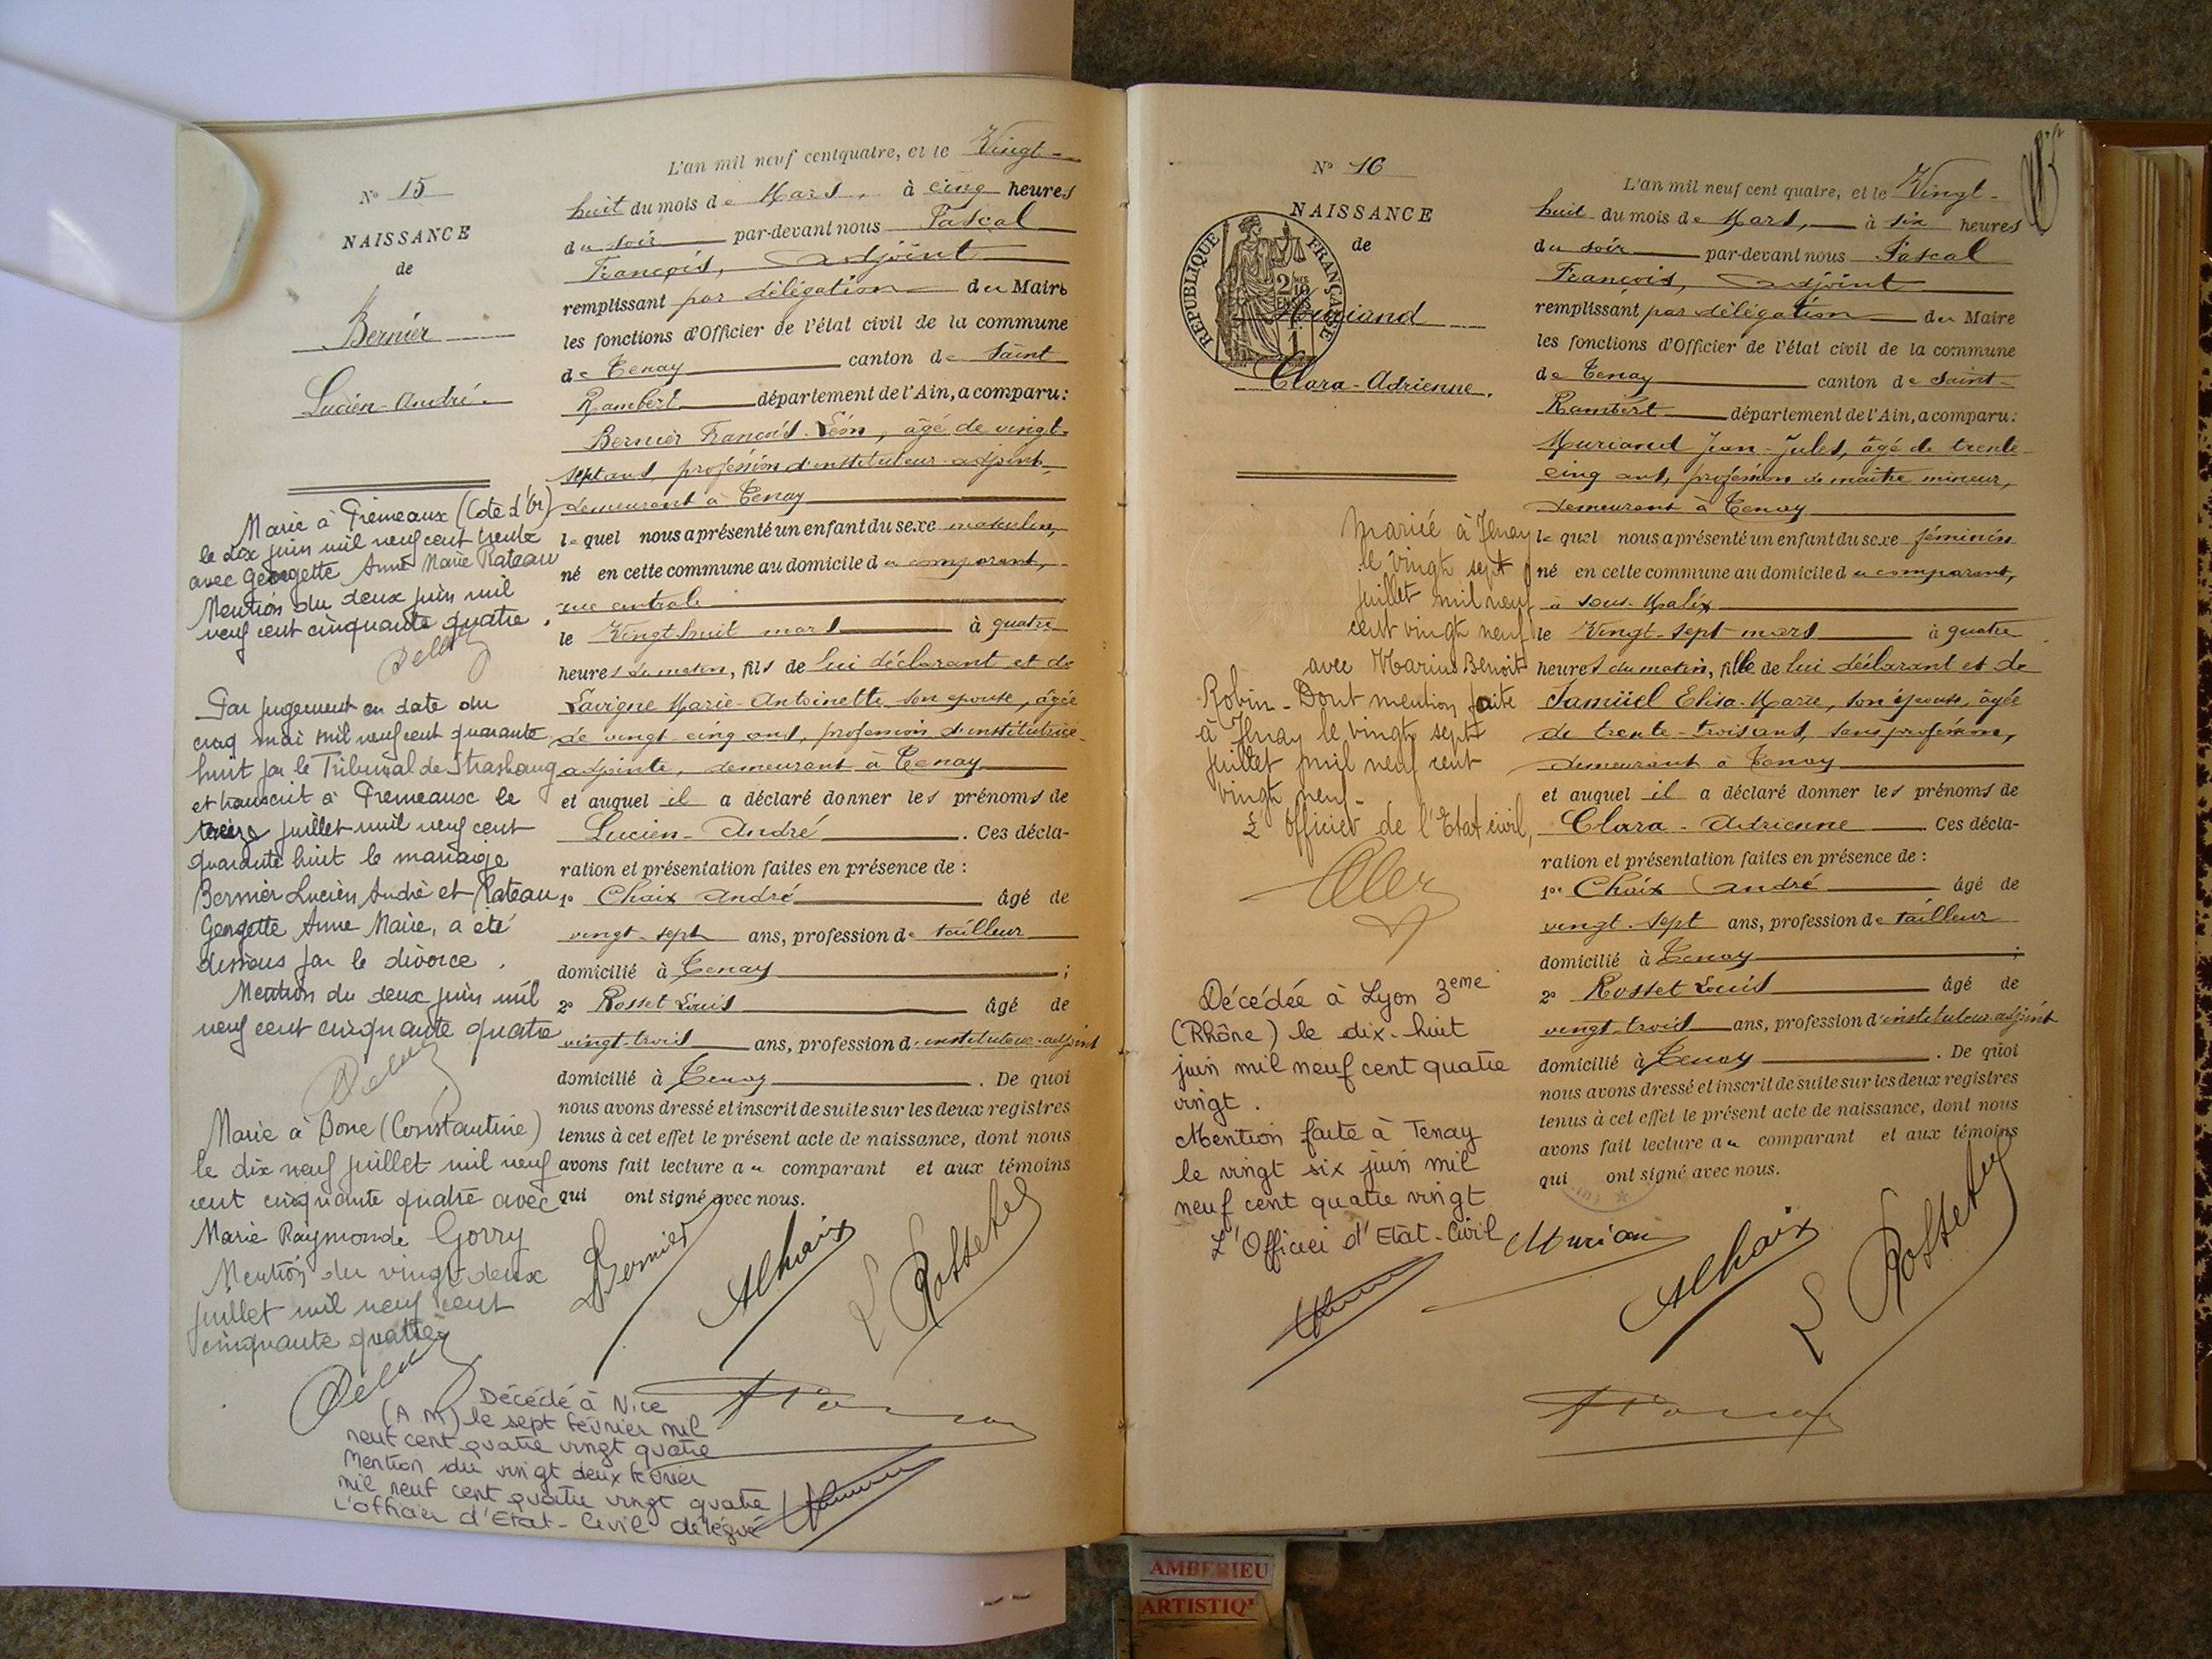 N° 15
NAISSANCE
de
Bernier
Lucien-André.
Marié à Premeaux (Côte d'Or)
le dix juin mil neuf cent trente
avec Georgette Anne Marie Rateau
Mention du deux juin mil
neuf cent cinquante quatre.
Par jugement en date du
cinq mai mil neuf cent quarante
huit par le Tribunal de Strasbourg
et transcrit à Premeaux le
treize juillet mil neuf cent
quarante huit le mariage
Bernier Lucien André et Rateau
Georgette Anne Marie, a été
dissous par le divorce.
Mention du deux juin mil
neuf cent cinquante quatre
Marié à Bone (Constantine)
le dix neuf juillet mil neuf
cent cinquante quatre avec
Marie Raymonde Gorry
Mention du vingt deux
juillet mil neuf cent
cinquante quatre
Décédé à Nice
(A M) le sept février mil
neuf cent quatre vingt quatre
Mention du vingt deux février
mil neuf cent quatre vingt quatre
L'officier d'Etat-Civil délégué
L'an mil neuf cent quatre, et le Vingt-
huit du mois de Mars, à cinq heures
du soir par-devant nous Pascal
François, adjoint
remplissant par délégation du Maire
les fonctions d'Officier de l'état civil de la commune
de Tenay canton de Saint
Rambert département de l'Ain, a comparu:
Bernier François-Léon, âgé de vingt-
sept ans, profession d'instituteur-adjoint,
demeurant à Tenay
lequel nous a présenté un enfant du sexe masculin,
né en cette commune au domicile du comparant,
rue centrale
le Vingt-huit mars à quatre
heures du matin, fils de lui déclarant et de
Lavigne Marie-Antoinette, son épouse, âgée
de vingt-cinq ans, profession d'institutrice-
adjointe, demeurant à Tenay
et auquel il a déclaré donner les prénoms de
Lucien-André. Ces décla-
ration et présentation faites en présence de :
1° Chaix André âgé de
vingt-sept ans, profession de tailleur
domicilié à Tenay ;
2° Rosset Louis âgé de
vingt-trois ans, profession d'instituteur-adjoint
domicilié à Tenay. De quoi
nous avons dressé et inscrit de suite sur les deux registres
tenus à cet effet le présent acte de naissance, dont nous
avons fait lecture au comparant et aux témoins
qui ont signé avec nous.
Bernier AChaix L Rosset
N° 16
NAISSANCE
de
REPUBLIQUE FRANÇAISE
Muriand
Clara-Adrienne.
Mariée à Tenay
le vingt sept
juillet mil neuf
cent vingt neuf
avec Marius Benoit
Robin - Dont mention faite
à Tenay le vingt sept
juillet mil neuf cent
vingt neuf -
L'Officier de l'Etat civil,
Décédée à Lyon 3eme
(Rhône) le dix-huit
juin mil neuf cent quatre
vingt.
Mention faite à Tenay
le vingt six juin mil
neuf cent quatre vingt
L'Officier d'Etat-Civil
L'an mil neuf cent quatre, et le Vingt-
huit du mois de Mars, à six heures
du soir par-devant nous Pascal
François, adjoint
remplissant par délégation du Maire
les fonctions d'Officier de l'état civil de la commune
de Tenay canton de Saint-
Rambert département de l'Ain, a comparu:
Muriand Jean-Jules, âgé de trente-
cinq ans, profession de maître mineur,
demeurant à Tenay
lequel nous a présenté un enfant du sexe féminin
né en cette commune au domicile du comparant,
à sous-Malix
le Vingt-sept mars à quatre
heures du matin, fille de lui déclarant et de
Samüel Elisa-Marie, son épouse, âgée
de trente-trois ans, sans profession,
demeurant à Tenay
et auquel il a déclaré donner les prénoms de
Clara-Adrienne Ces décla-
ration et présentation faites en présence de :
1° Chaix André âgé de
vingt-sept ans, profession de tailleur
domicilié à Tenay ;
2° Rosset Louis âgé de
vingt-trois ans, profession d'instituteur-adjoint
domicilié à Tenay. De quoi
nous avons dressé et inscrit de suite sur les deux registres
tenus à cet effet le présent acte de naissance, dont nous
avons fait lecture au comparant et aux témoins
qui ont signé avec nous.
Muriand AChaix L Rosset
AMBERIEU
ARTISTIQ